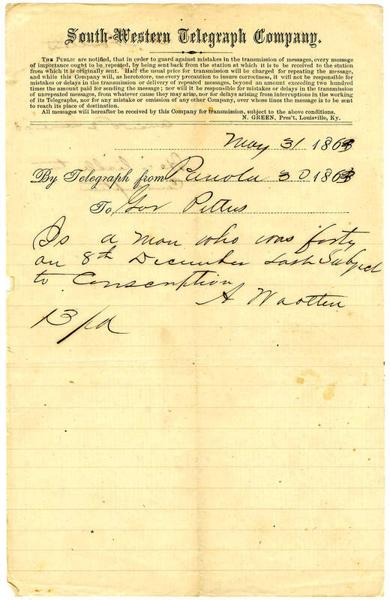 South-Western Telegraph Company.
THE PUBLIC are notified, that in order to guard against mistakes in the transmission of messages, every message
of importance ought to be repeated, by being sent back from the station at which it is to be received to the station
from which it is originally sent. Half the usual price for transmission will be charged for repeating the message,
and while this Company will, as heretofore, use every precaution to insure correctness, it will not be responsible for
mistakes or delays in the transmission or delivery of repeated messages, beyond an amount exceeding two hundred
times the amount paid for sending the message; nor will it be responsible for mistakes or delays in the transmission
of unrepeated messages, from whatever cause they may arise, nor for delays arising from interruptions in the working
of its Telegraphs, nor for any mistake or omission of any other Company, over whose lines the message is to be sent
to reach its place of destination.
All messages will hereafter be received by this Company for transmission, subject to the above conditions.
N. GREEN, Pres't, Louisville, Ky.
May 31 1863
By Telegraph from Panola 30 1863
To Gov Pettus
Is a man who was forty
on 8th December last subject
to Conscription
A Wootten
13/pd